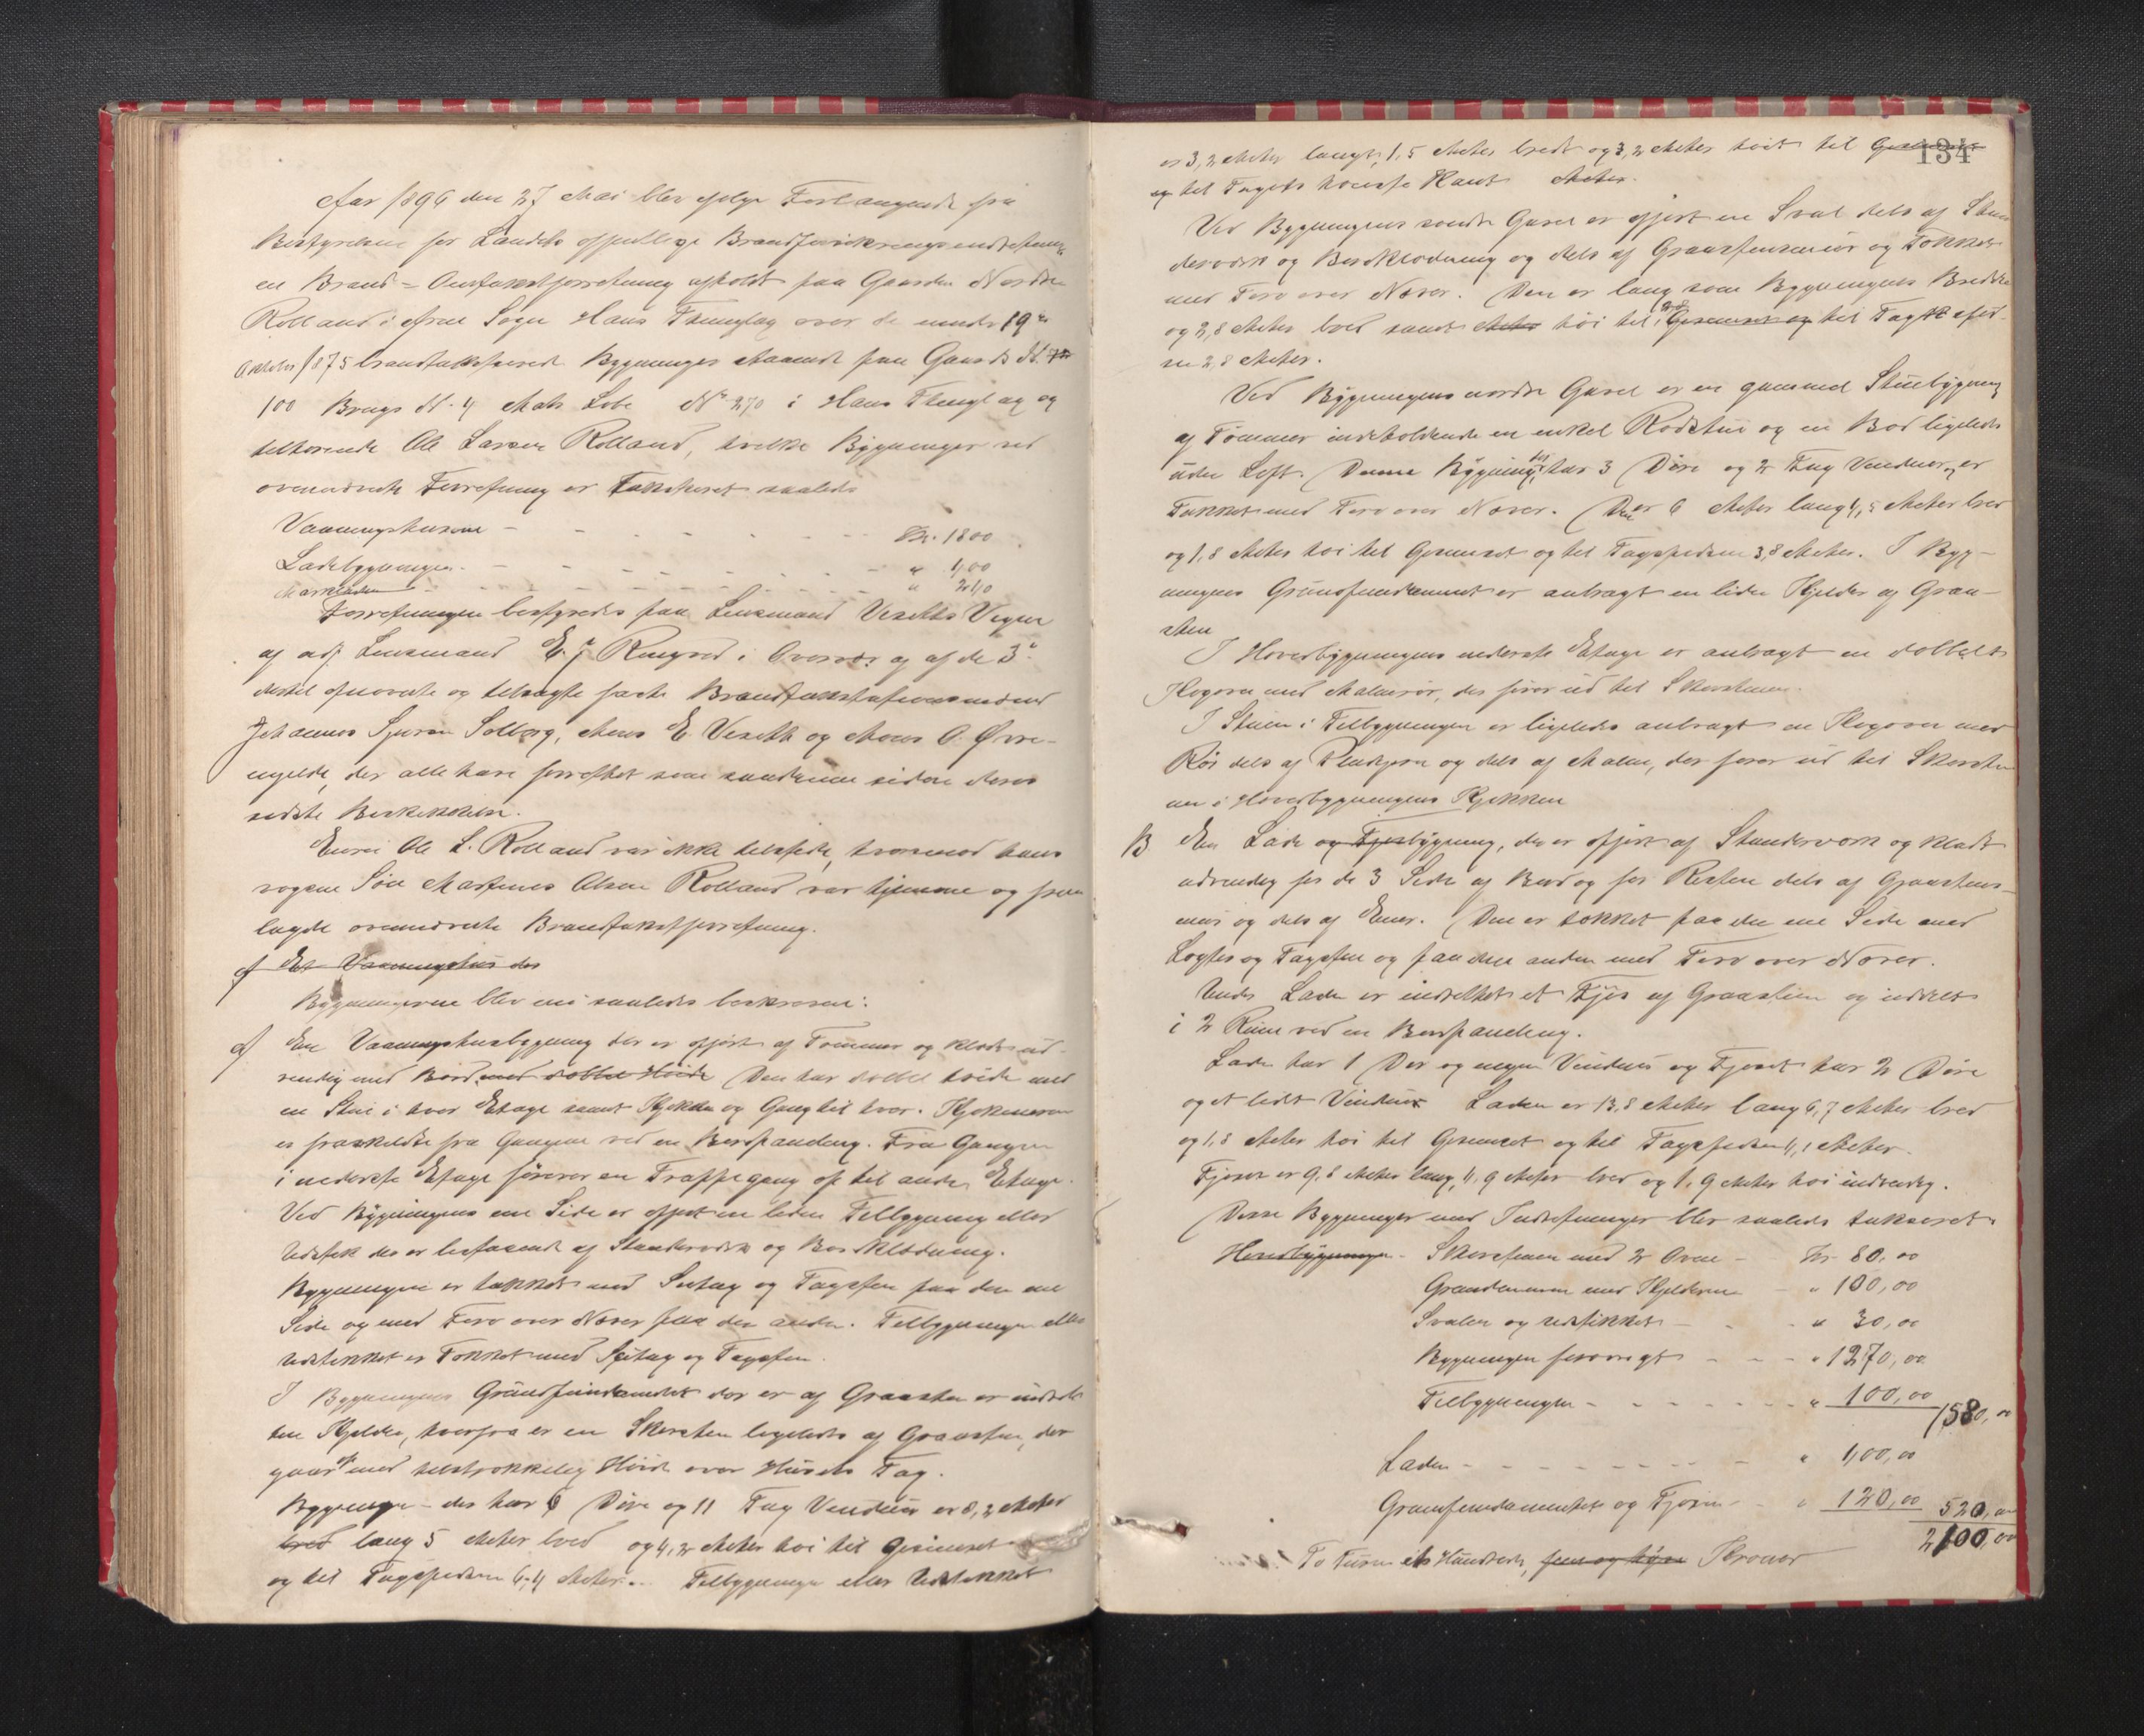 Aar 1896 den 27 Mai blev ifølge Forlangende fra
Bestyrelsen for Landets offentlige Brandforsikringsindretning
en Brand-Omtaxtforretning afholdt paa Gaarden Nordre
Rolland i Arne Sogn Hans Thinglag over de under 19de
Oktober 1875 brandtaksterede Bygninger staaende paa Gaards N.
100 Brugs N. 4 Matr. Løbe No 270 i Hans Thinglag og
tilhørende Ole Larsen Rolland, hvilke Bygninger ved
ovennævnte Forretning er Taksteret saaledes
Vaaningshusene - - - - Kr. 1800
Ladebygningen - - - - " 400
Markladen - - - - " 240
Forretningen bestyredes paa Lensmand Veseths Vegne
af adj Lensmand E. J. Ringved i Overvær og af de 3de
dertil opnævnte og tilsagte faste Brandtakstationsmænd
Johannes Sjursen Solberg, Mons E. Veseth og Mons O. Øvre-
, der alle have forrettet som saadanne siden deres
sidste Beskikkelse.
Eieren Ole L. Rolland var ikke tilstede, hvorimod hans
voxne Søn Martinus Olsen Rolland var hjemme og frem
lagde ovennævnte Brandtakstforretning.
A Et Vaaningshus der
Bygningerne blev nu saaledes beskrevne:
A En Vaaningshusbygning der er opført af Tømmer og klædt ud-
vendig med Bord med dobbel Høide Den har dobbel høide med
en Stue i hver Etage samt Kjøkken og Gang til hver. Kjøkkenerne
er fraskildte fra Gangene ved en Bordpanding. Fra Gangen
i nederste Etage fører en Trappegang op til anden Etage.
Ved Bygningens ene Side er opført en liden Tilbygning eller
Udstik der er bestaaende af Standerværk og Bordklædning.
Bygningen er tækket med Sutag og Tagsten paa den ene
Side og med Torv over Næver paa den anden. Tilbygningen eller
Udstikket er Tækket med Sutag og Tagsten.
I Bygningens Grundfundamentet der er af Graasten er indret-
ten Kjelder, hvorfra er en Skorsten ligeledes af Graasten, der
gaar op med tilstrækkelig Høide over Husets Tag.
Bygningen - der har 6 Døre og 11 Fag Vinduer er 8,2 Meter
bred lang 5 Meter bred og 4,2 Meter høi til Gesimset
og til Tagspidsen 6,4 Meter. Tilbygningen eller Udstikket
134
er 3,2 Meter langt, 1,5 Meter bredt og 3,2 Meter høit til Gesimset
og til Tagets høieste Kant Meter.
Ved Bygningens søndre Gavel er opført en Sval dels af Stan
derværk og Bordklædning og dels af Graastensmur og Tækket
med Torv over Næver. Den er lang som Bygningens Bredde
og 2,8 Meter bred samt Meter høi til Gesimset og til Tag
2,8 Meter.
Ved Bygningens nordre Gavel er en gammel Stuebygning
af Tømmer indeholdende en enkel Rødstue og en Bod ligeledes
uden Loft. Denne Bygning, der har 3 Døre og 2 Fag Vinduer, er
Tækket med Torv over Næver. Den er 6 Meter lang 4,5 Meter bred
og 1,8 Meter høi til Gesimset og til Tagspidsen 3,8 Meter. I Byg-
ningens Grundfundament er anbragt en liden Kjelder af Graa-
sten
I Hovedbygningens nederste Etage er anbragt en dobbelt
Kogovn med Malmrør, der fører ud til Skorstenen.
I Stuen i Tilbygningen er ligeledes anbragt en Kogovn med
Rør dels af Pladejern og dels af Malm, der fører ud til Skorsten
en i Hovedbygningens Kjøkken
B En Lade og Fjøsbygning, der er opført af Standerværk og klædt
udvendig for de 3 Sider af Bord og for Resten dels af Graastens-
mur og dels af Ener. Den er tækket paa den ene Side med
Lægter og Tagsten og paa den anden med Torv over Næver.
Under Laden er indrettet et Fjøs af Graasten og inddelt
i 2 Rum ved en Bordpanding.
Laden har 1 Dør og ingen Vinduer og Fjøset har 2 Døre
og et lidet Vindue Laden er 13,8 Meter lang 6,7 Meter bred
og 1,8 Meter høi til Gesimset og til Tagspidsen 4,1 Meter.
Fjøset er 9,8 Meter lang, 4,9 Meter bred og 1,9 Meter høi indvendig.
Disse Bygninger med Indretninger blev saaledes takseret
Hovedbygningen - Skorstenen med 2 Ovne - Kr. 80,00
Grundmuren med Kjelderen - " 100,00
Svalen og Udstikket - - " 30,00
Bygningen forøvrigt - - - " 1270,00
Tilbygningen - - - - " 100,00 1580,00
Laden - - - - " 400,00
Grundfundamentet og Fjøsen - " 120,00 520,00
2100,00
To Tusen et Hundrede, fem og Kroner